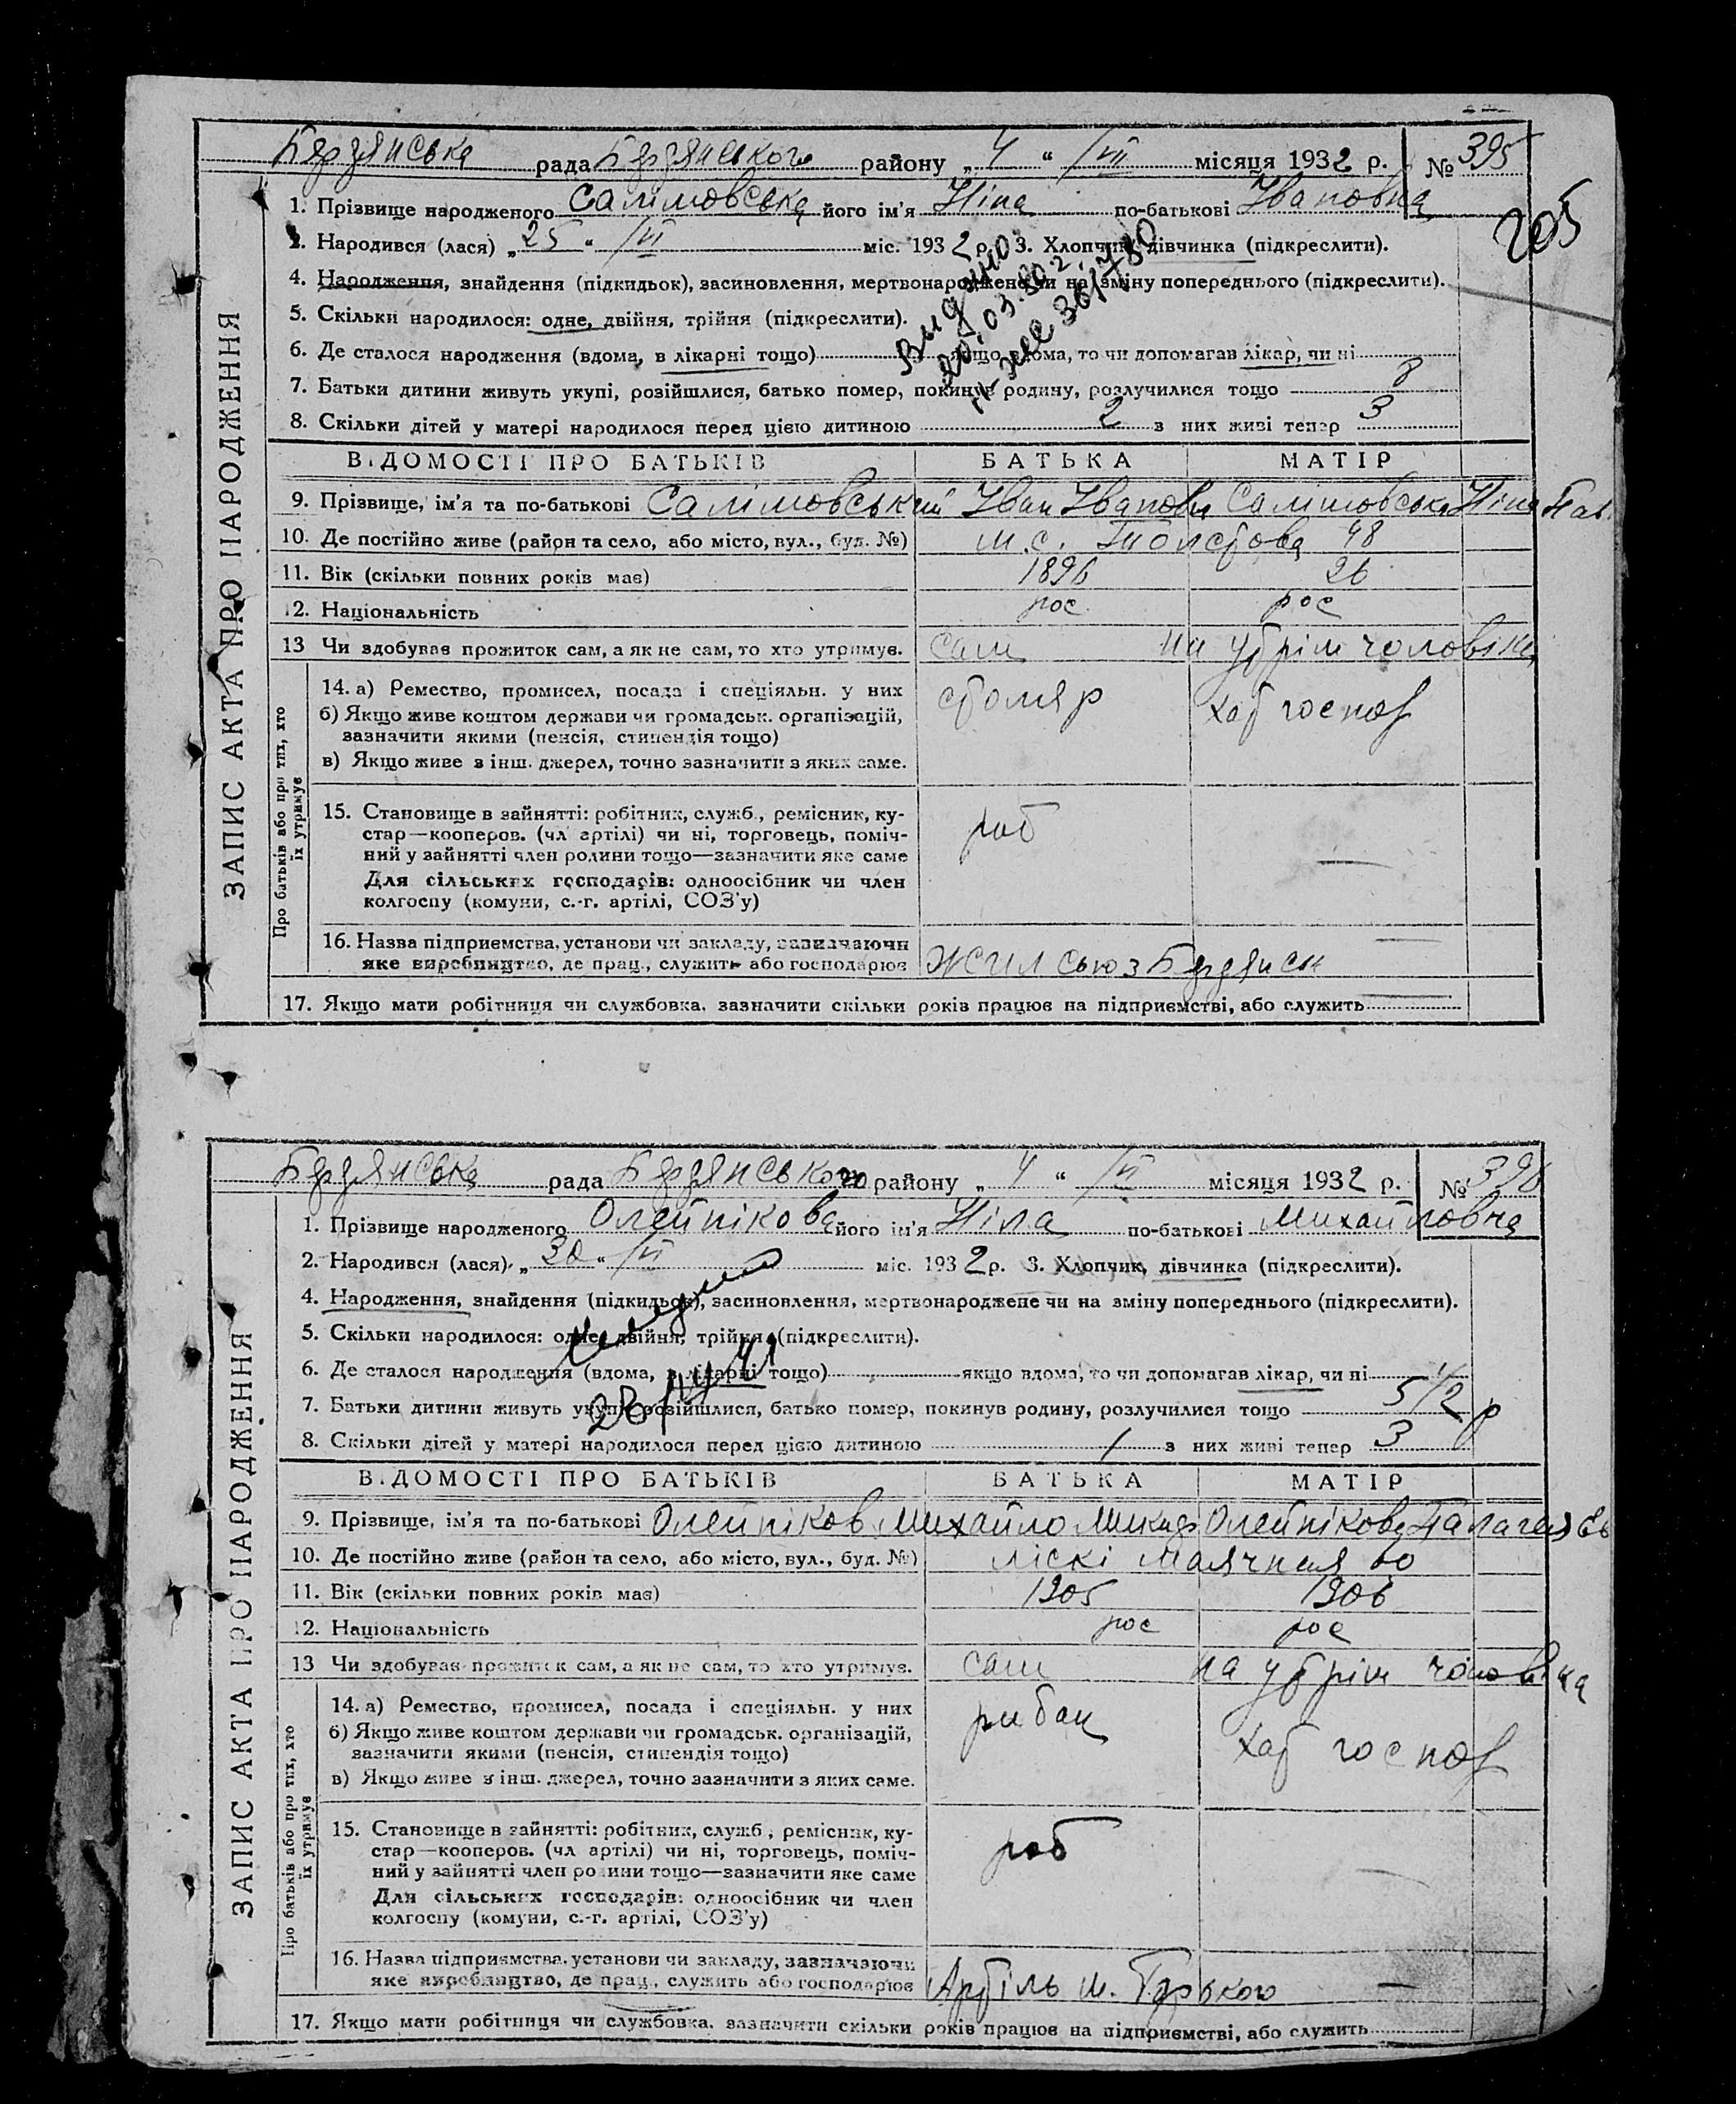 Бердянська рада Бердянського району „4“ /VII місяця 1932 р. № 395
205
ЗАПИС АКТА ПРО НАРОДЖЕННЯ
1. Прізвище народженого Салімовська його ім'я Ніна по-батькові Івановна
2. Народився (лася) „25“ /VI міс. 1932 р. 3. Хлопчик, дівчинка (підкреслити).
4. Народження, знайдення (підкидьок), засиновлення, мертвонароджене чи на зміну попереднього (підкреслити).
5. Скільки народилося: одне, двійня, трійня (підкреслити).
6. Де сталося народження (вдома, в лікарні тощо) якщо вдома, то чи допомагав лікар, чи ні
7. Батьки дитини живуть укупі, розійшлися, батько помер, покинув родину, розлучилися тощо 8
8. Скільки дітей у матері народилося перед цією дитиною 2 з них живі тепер 3
ВІДОМОСТІ ПРО БАТЬКІВ БАТЬКА МАТІР
9. Прізвище, ім'я та по-батькові Салімовський Іван Іванов Салімовська Ніна Пав.
10. Де постійно живе (район та село, або місто, вул., буд. №) м.с. Толстова 48
11. Вік (скільки повних років має) 1896 26
12. Національність рос. рос
13 Чи здобував прожиток сам, а як не сам, то хто утримує. сам на утрім чоловіка
Про батьків або про тих, хто їх утримує
14. а) Ремество, промисел, посада і спеціяльн. у них столяр хат господ
б) Якщо живе коштом держави чи громадськ. організацій,
зазначити якими (пенсія, стипендія тощо)
в) Якщо живе з інш. джерел, точно зазначити з яких саме.
15. Становище в зайнятті: робітник, служб., ремісник, ку-
стар—кооперов. (чл артілі) чи ні, торговець, поміч-
ний у зайнятті член родини тощо—зазначити яке саме роб —
Для сільських господарів: одноосібник чи член
колгоспу (комуни, с.-г. артілі, СОЗ'у)
16. Назва підприємства, установи чи закладу, зазначаючи
яке виробництво, де прац., служить або господарює Жилсоюз Бердянськ
17. Якщо мати робітниця чи службовка, зазначити скільки років працює на підприємстві, або служить —
Бердянська рада Бердянського району „4“ /VII місяця 1932 р. № 396
ЗАПИС АКТА ПРО НАРОДЖЕННЯ
1. Прізвище народженого Олейнікова його ім'я Ніла по-батькові Михайловна
2. Народився (лася) „30“ /VI міс. 1932 р. 3. Хлопчик, дівчинка (підкреслити).
4. Народження, знайдення (підкидьок), засиновлення, мертвонароджене чи на зміну попереднього (підкреслити).
5. Скільки народилося: одне, двійня, трійня (підкреслити).
6. Де сталося народження (вдома, в лікарні тощо) якщо вдома, то чи допомагав лікар, чи ні
7. Батьки дитини живуть укупі, розійшлися, батько помер, покинув родину, розлучилися тощо 5 1/2 р
8. Скільки дітей у матері народилося перед цією дитиною 1 з них живі тепер 3
ВІДОМОСТІ ПРО БАТЬКІВ БАТЬКА МАТІР
9. Прізвище, ім'я та по-батькові Олейніков Михайло Микит Олейнікова Палагея Єв
10. Де постійно живе (район та село, або місто, вул., буд. №) Ліскі Маячная
11. Вік (скільки повних років має) 1905 1906
12. Національність рос рос
13 Чи здобував прожиток сам, а як не сам, то хто утримує. сам на утрім чоловіка
Про батьків або про тих, хто їх утримує
14. а) Ремество, промисел, посада і спеціяльн. у них рибак хат господ
б) Якщо живе коштом держави чи громадськ. організацій,
зазначити якими (пенсія, стипендія тощо)
в) Якщо живе з інш. джерел, точно зазначити з яких саме.
15. Становище в зайнятті: робітник, служб., ремісник, ку-
стар—кооперов. (чл артілі) чи ні, торговець, поміч-
ний у зайнятті член родини тощо—зазначити яке саме роб —
Для сільських господарів: одноосібник чи член
колгоспу (комуни, с.-г. артілі, СОЗ'у)
16. Назва підприємства, установи чи закладу, зазначаючи
яке виробництво, де прац., служить або господарює Артіль ім. Горького —
17. Якщо мати робітниця чи службовка, зазначити скільки років працює на підприємстві, або служить